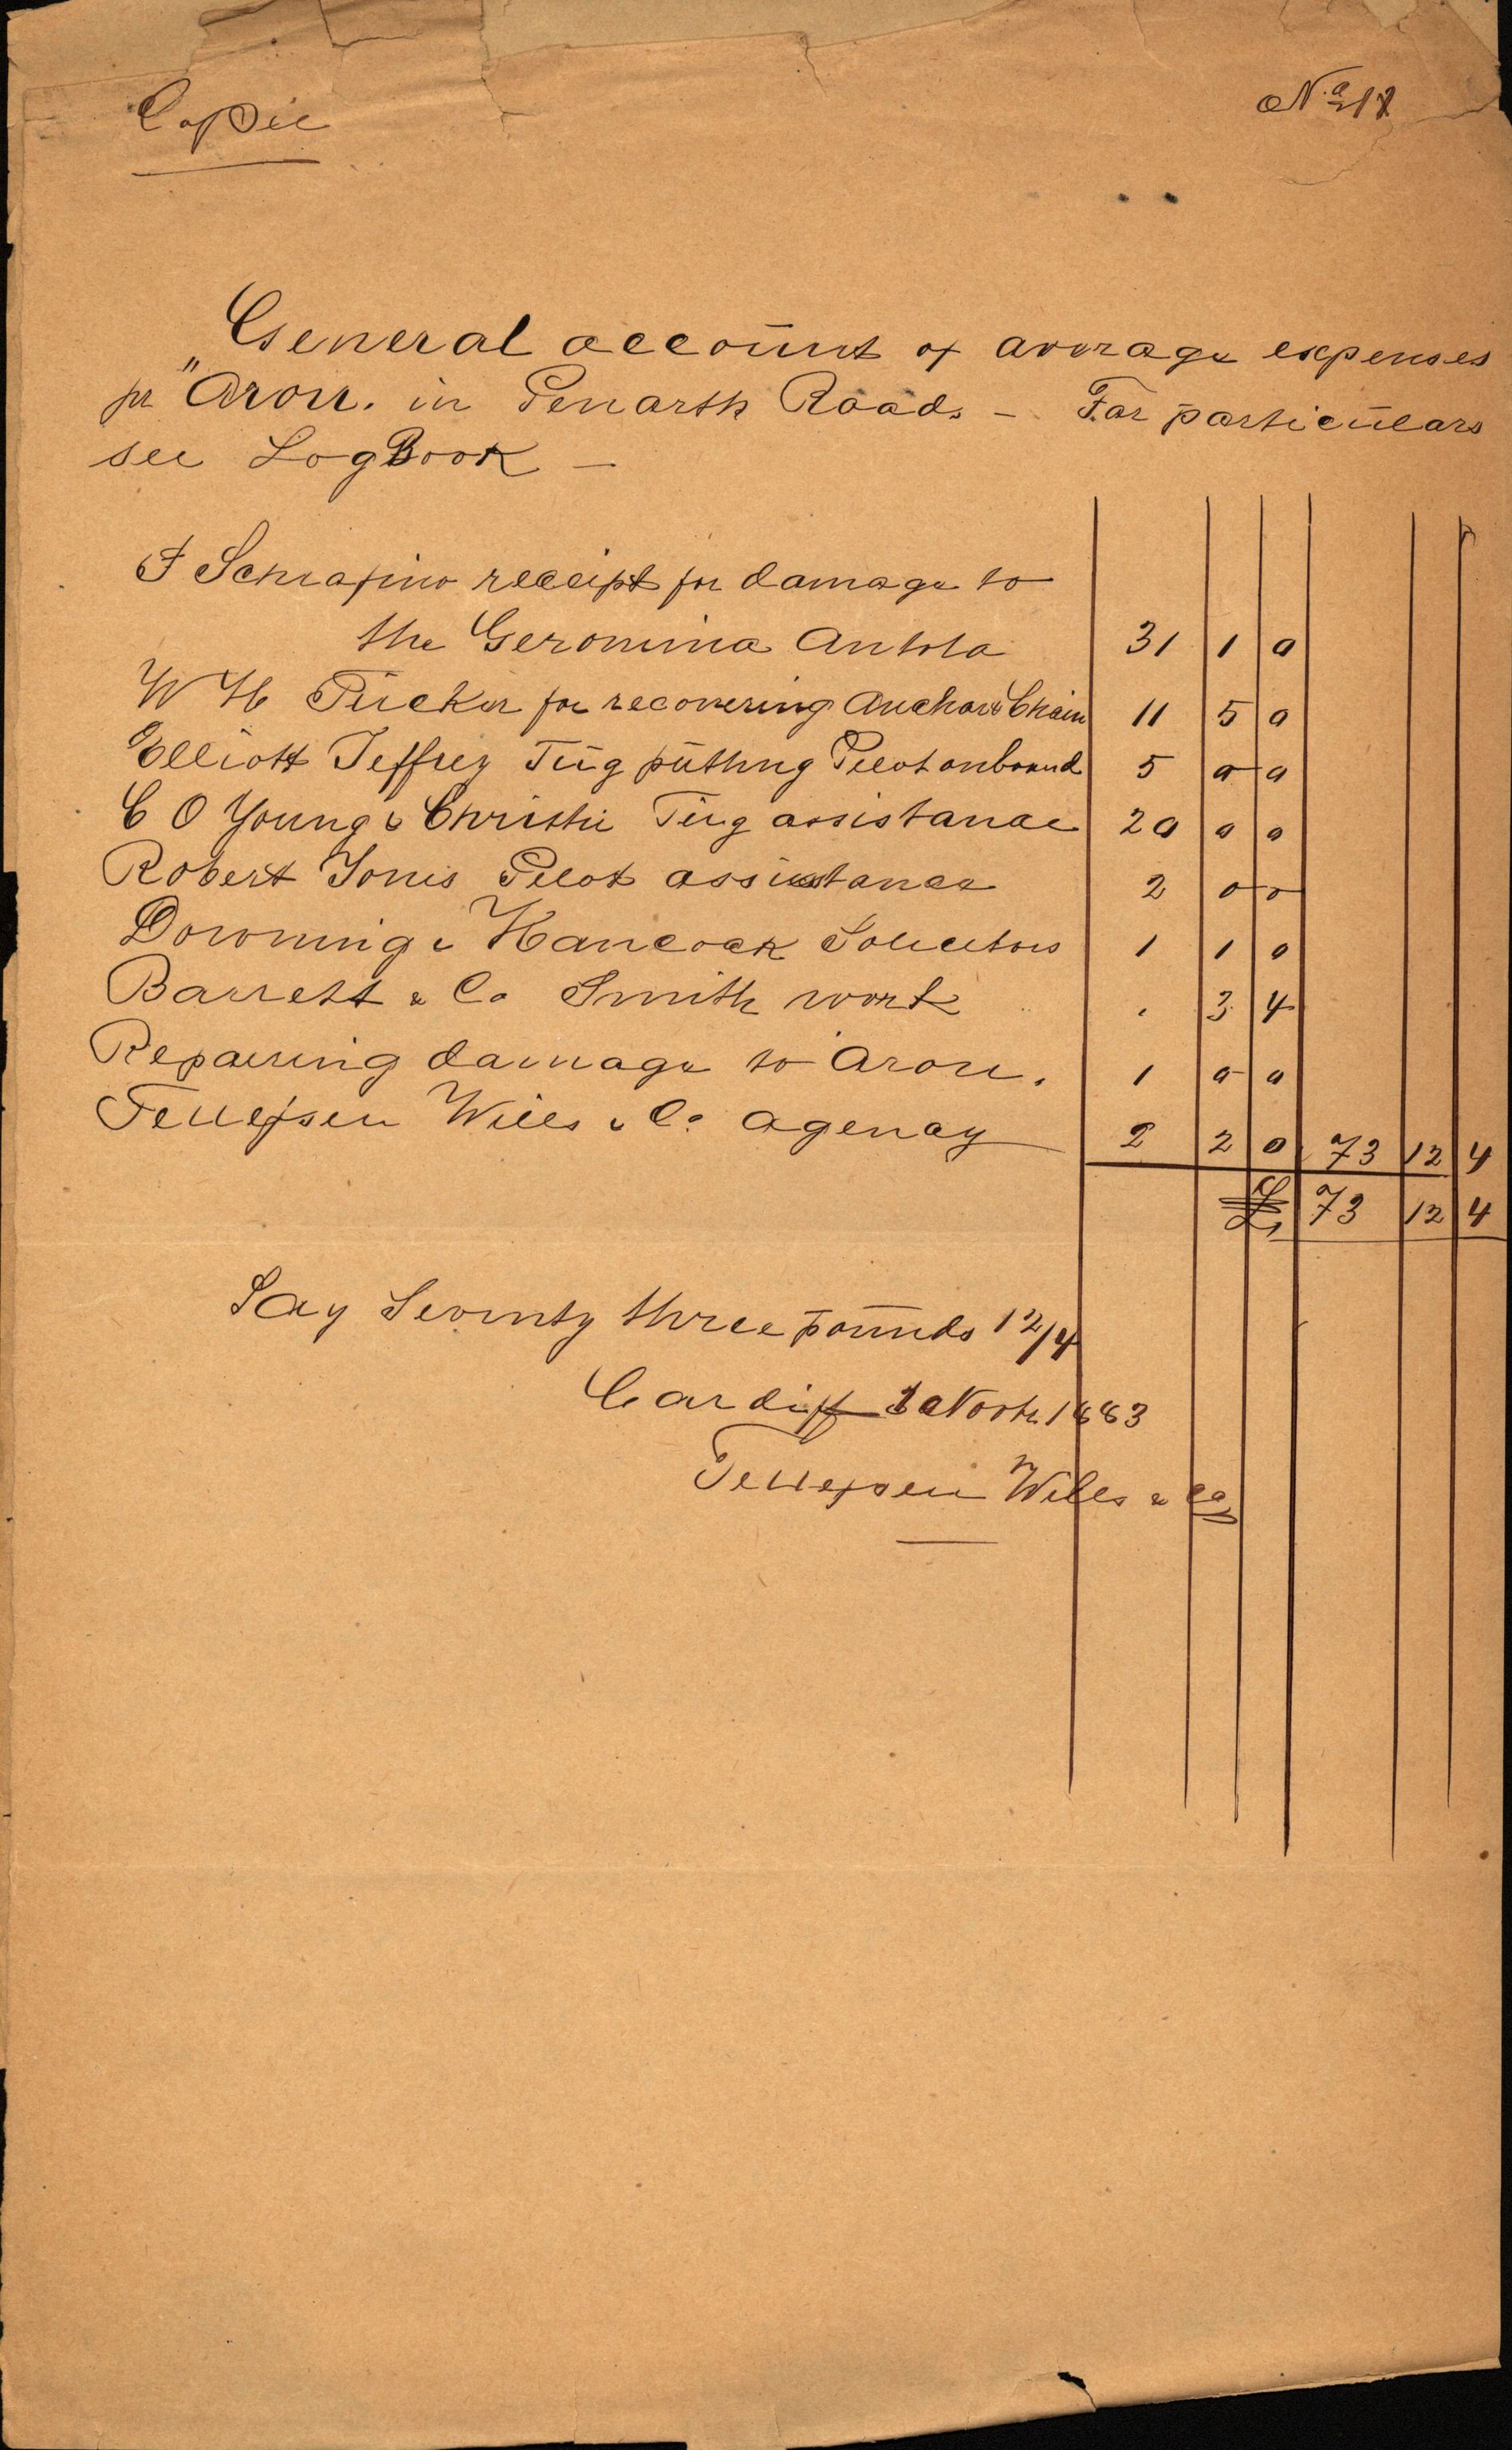 Copie
No
General account of average expenses
pr "Aron. in Penarth Roads - For particulars
see LogBook -
F Schiafino receipt for damage to
the Geromina Antola 31 1 0
W H Tucker for recovering Anchor & Chain 11 5 0
Elliott Jeffrey Tug putting Pilot onboard 5 0 0
C O Young & Christie Tug assistance 20 0 0
Robert Jones Pilot assistance 2 0 0
Downing & Hancock Solicitors 1 1 0
Barrett & Co Smith work . 3 4
Repairing damage to Aron. 1 0 0
Tellefsen Wills & Co agency 2 2 0 73 12 4
£ 73 12 4
Say Seventy three pounds 12/4
Cardiff Novbr 1883
Tellefsen Wills & Co